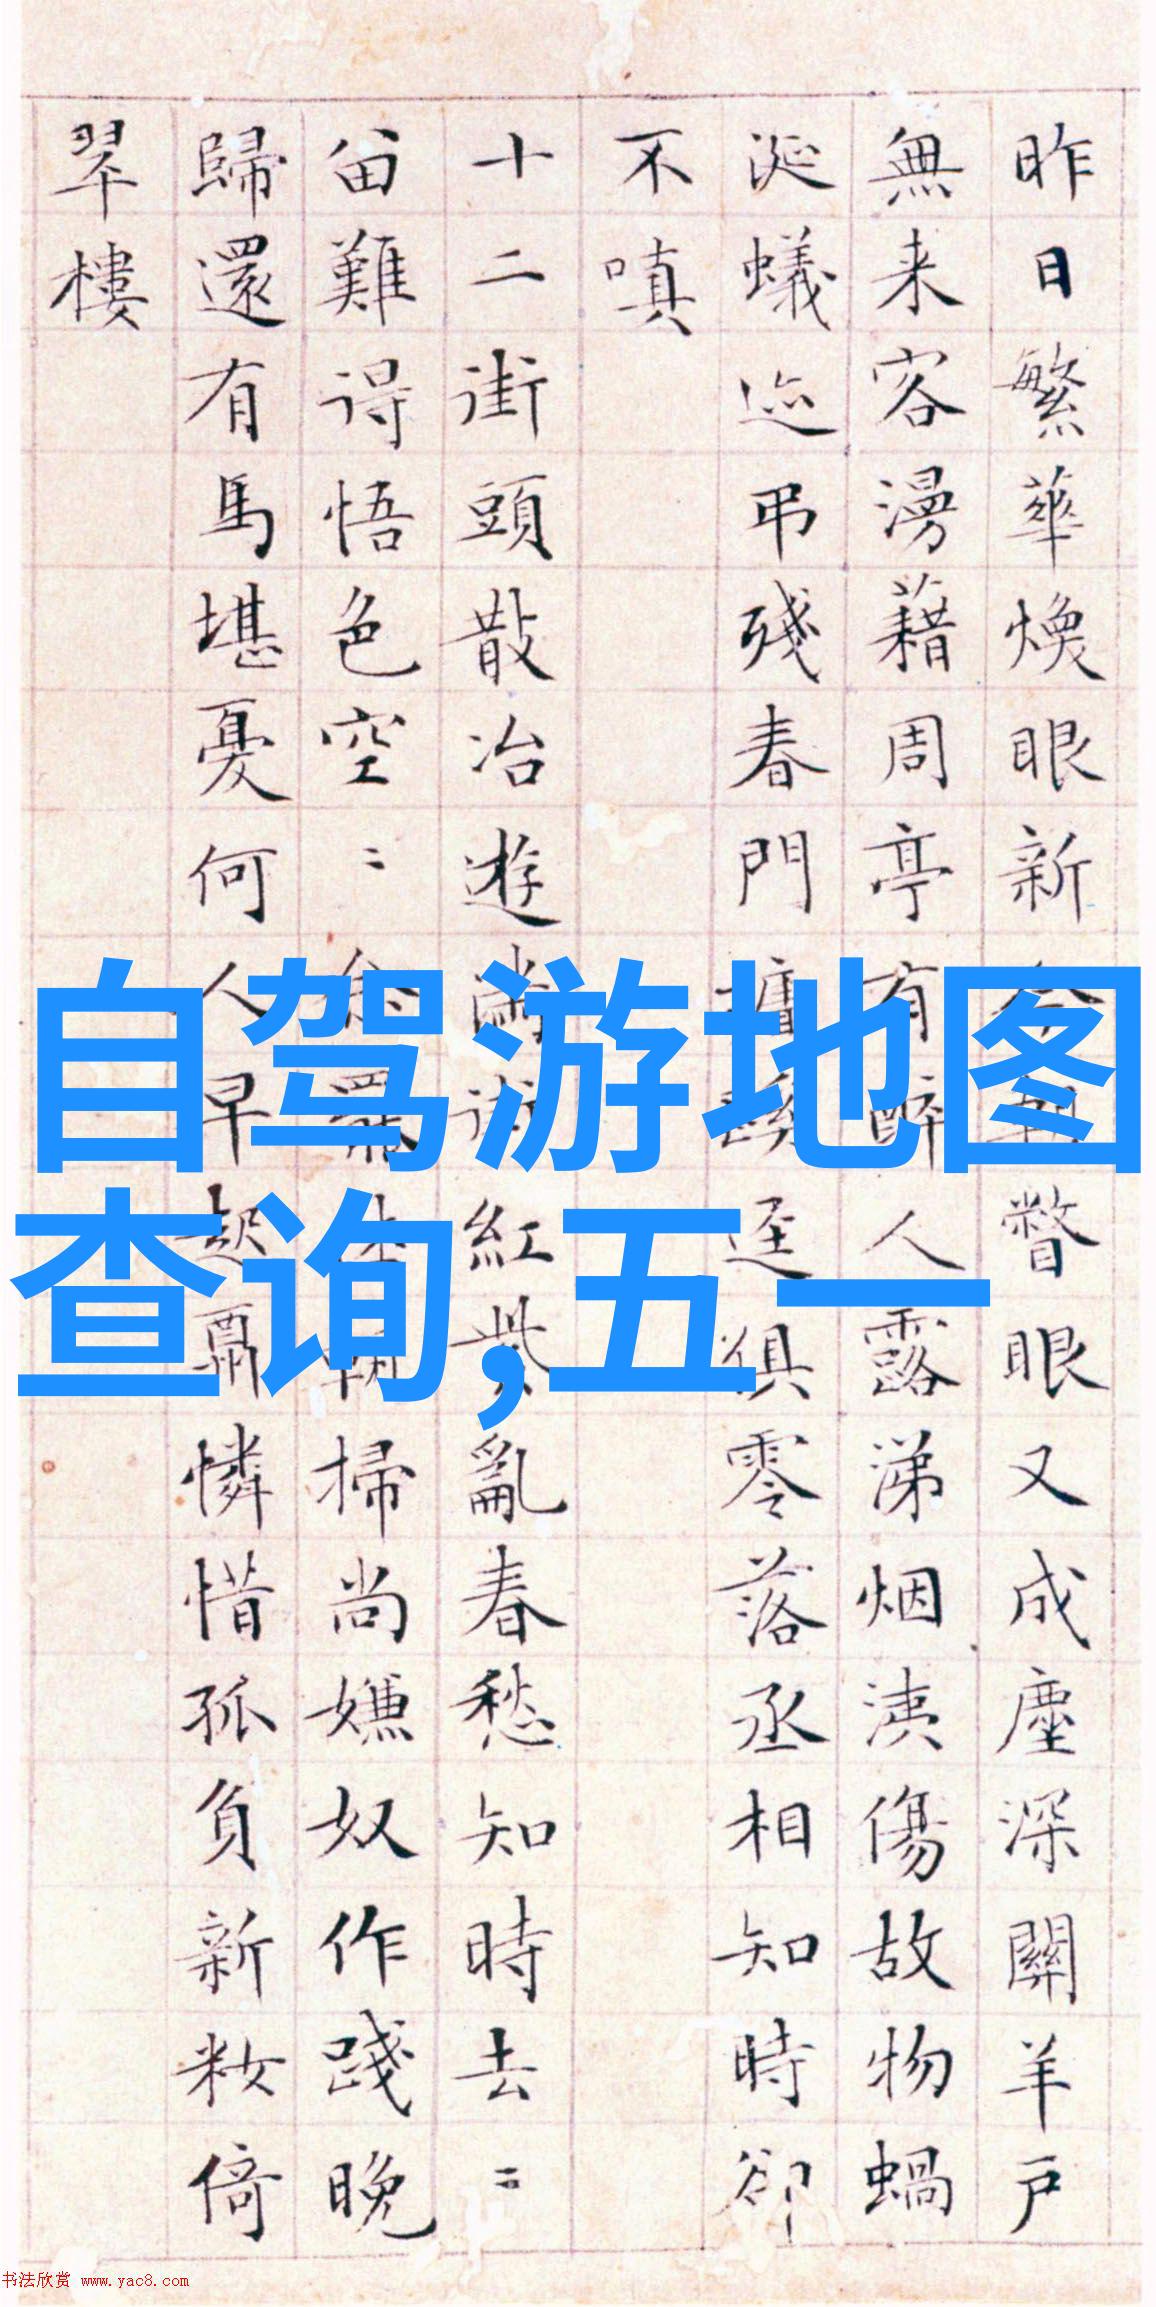 昨日繁華煥眼新今朝瞥眼又成塵深關羊戶
無来客漫藉周亭有醉人露涕烟洟傷故物蝸
涎蟻迹弔殘春門逕俱零落丞相知時卻
不嗔
十二街頭散冶遊滿街紅紫亂春愁知時去〻
畱難得悟色空〻掃尚嫌奴作踐晚
歸還有馬堪憂何人早起肅憐惜孤負新粧倚
翠樓
自驾游地图
查询,五一
书法欣赏 www.yac8.com